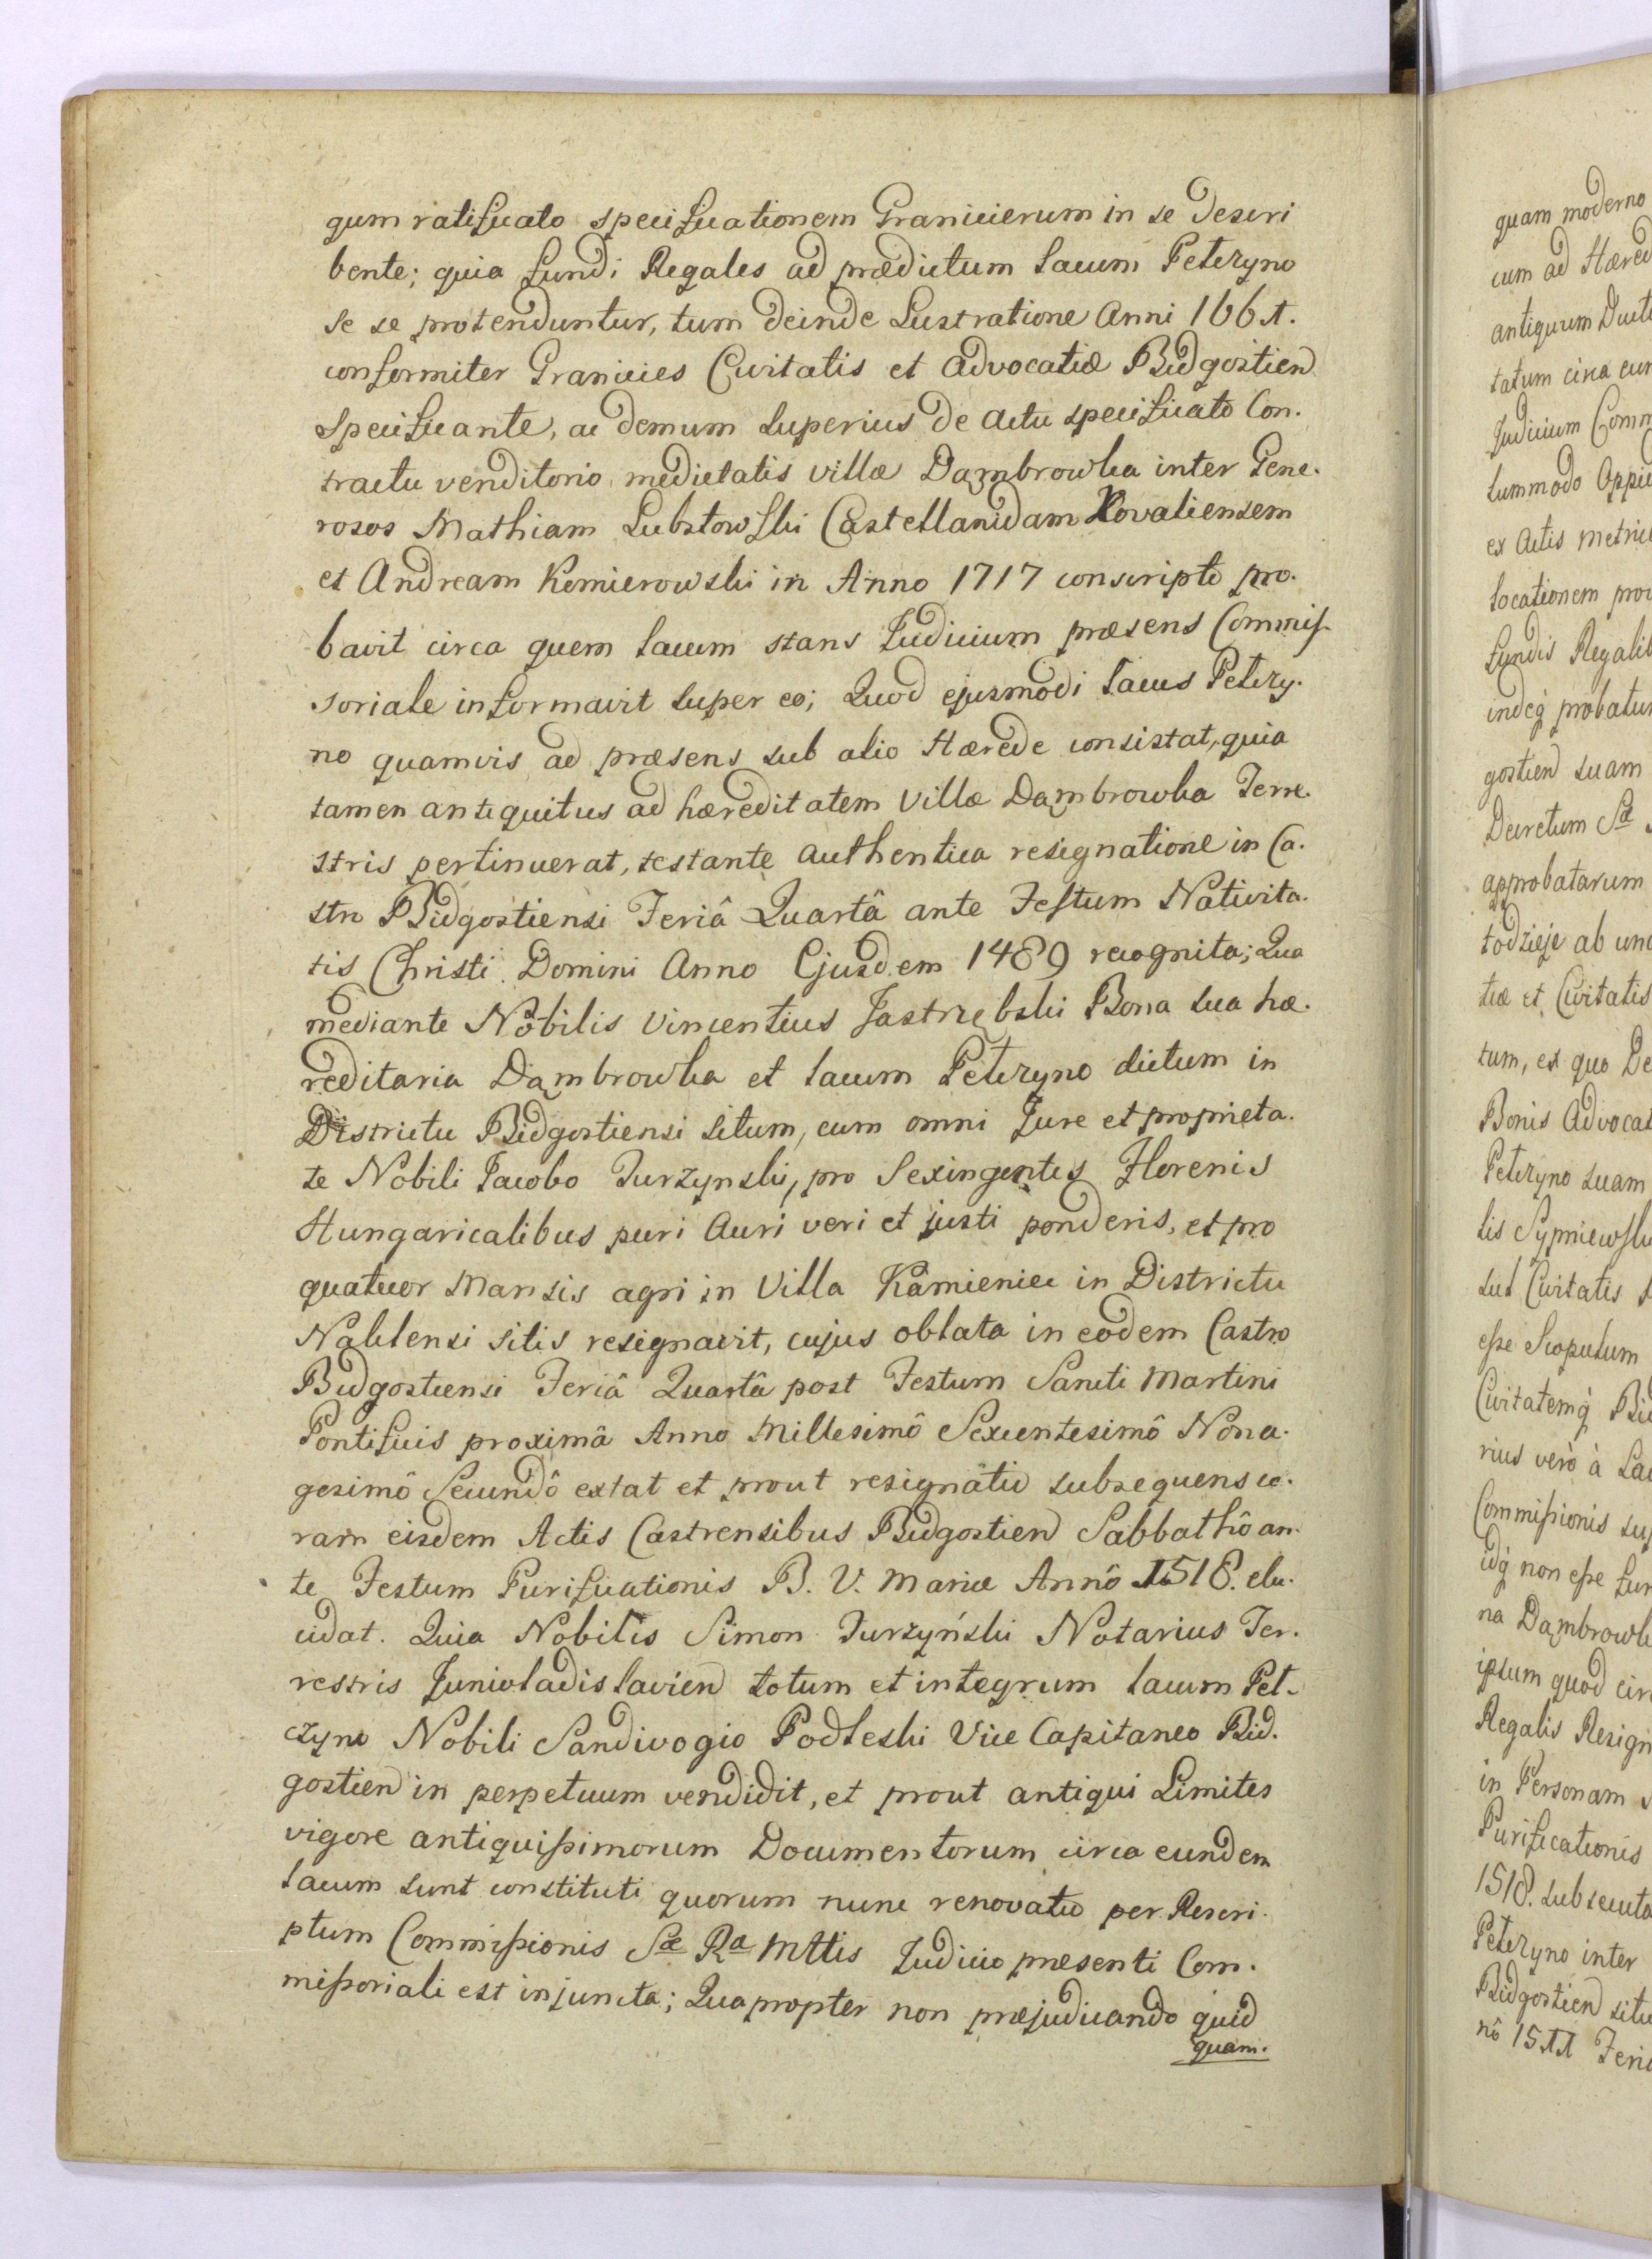 gum ratificato specificationem Granicierum in se descri
bente; quia fundi Regales ad prædictum lacum Petczyno
se se protenduntur, tum deinde Lustratione Anni 1661.
conformiter Granicies Civitatis et Advocatiæ Bidgostien
specificante, ac demum superius de Actu specificato Con.
tractu venditorio medietatis villæ Dąmbrowka inter Gene.
rosos Mathiam Lubstowski Castellanidam Kovaliensem
et Andream Komierowski in Anno 1717 conscripto pro.
bavit circa quem lacum stans Judicium præsens Commis.
soriale informavit super eo; Quod ejusmodi lacus Petczy.
no quamvis ad præsens sub alio Hærede consistat, quia
tamen antiquitus ad hæreditatem Villæ Dąmbrowka Terre.
stris pertinuerat, testante Authentica resignatione in Ca.
stro Bidgostiensi Feriâ Quartâ ante Festum Nativita.
tis Christi Domini Anno Ejusdem 1489 recognita; Qua
mediante Nobilis Vincentius Jastrzębski Bona sua hæ.
reditaria Dąmbrowka et lacum Petczyno dictum in
Districtu Bidgostiensi situm, cum omni Jure et proprieta.
te Nobili Jacobo Turzynski, pro Sexingentis Florenis
Hungaricalibus puri Auri veri et justi ponderis, et pro
quatuor Mansis agri in Villa Kamieniec in Districtu
Naklensi sitis resignavit, cujus oblata in eodem Castro
Bidgostiensi Feriâ Quartâ post Festum Sancti Martini
Pontificis proximâ Anno Millesimô Sexcentesimô Nona.
gesimô Secundô extat et prout resignatio subsequens co.
ram eisdem Actis Castrensibus Bidgostien Sabbathô an.
te Festum Purificationis B. V. Mariæ Annô 1518. elu.
cidat. Quia Nobilis Simon Turzyński Notarius Ter.
restris Junivladislavien totum et integrum lacum Pet.
czyno Nobili Sandivogio Podleski Vice Capitaneo Bid.
gostien in perpetuum vendidit, et prout antiqui Limites
vigore antiquissimorum Documentorum circa eundem
lacum sunt constituti quorum nunc renovatio per Rescri.
ptum Commissionis Sæ Ræ Mttis Judicio præsenti Com.
missoriali est injuncta; Quapropter non præjudicando quid
quam.
quam moderno
cum ad Hæred
antiquum Duct
tatum circa eun
Judicium Comm
summodo Oppi
ex Actis Metric
locationem pro
fundis Regalib
indeq probatu
gostien suam
Decretum Sæ
approbatarum
todzieje ab un
tiæ et Civitatis
tum, ex quo De
Bonis Advocat
Petczyno suam
lis Sypniewski
sub Civitatis
esse Scopulum
Civitatemq Bid
rius verò à Lac
Commissionis sup
idq non esse fun
na Dąmbrowk
ipsum quod cir
Regalis Resign
in Personam
Purificationis
1518. subsecuta
Petczyno inter
Bidgostien situ
nô 1511 Feria